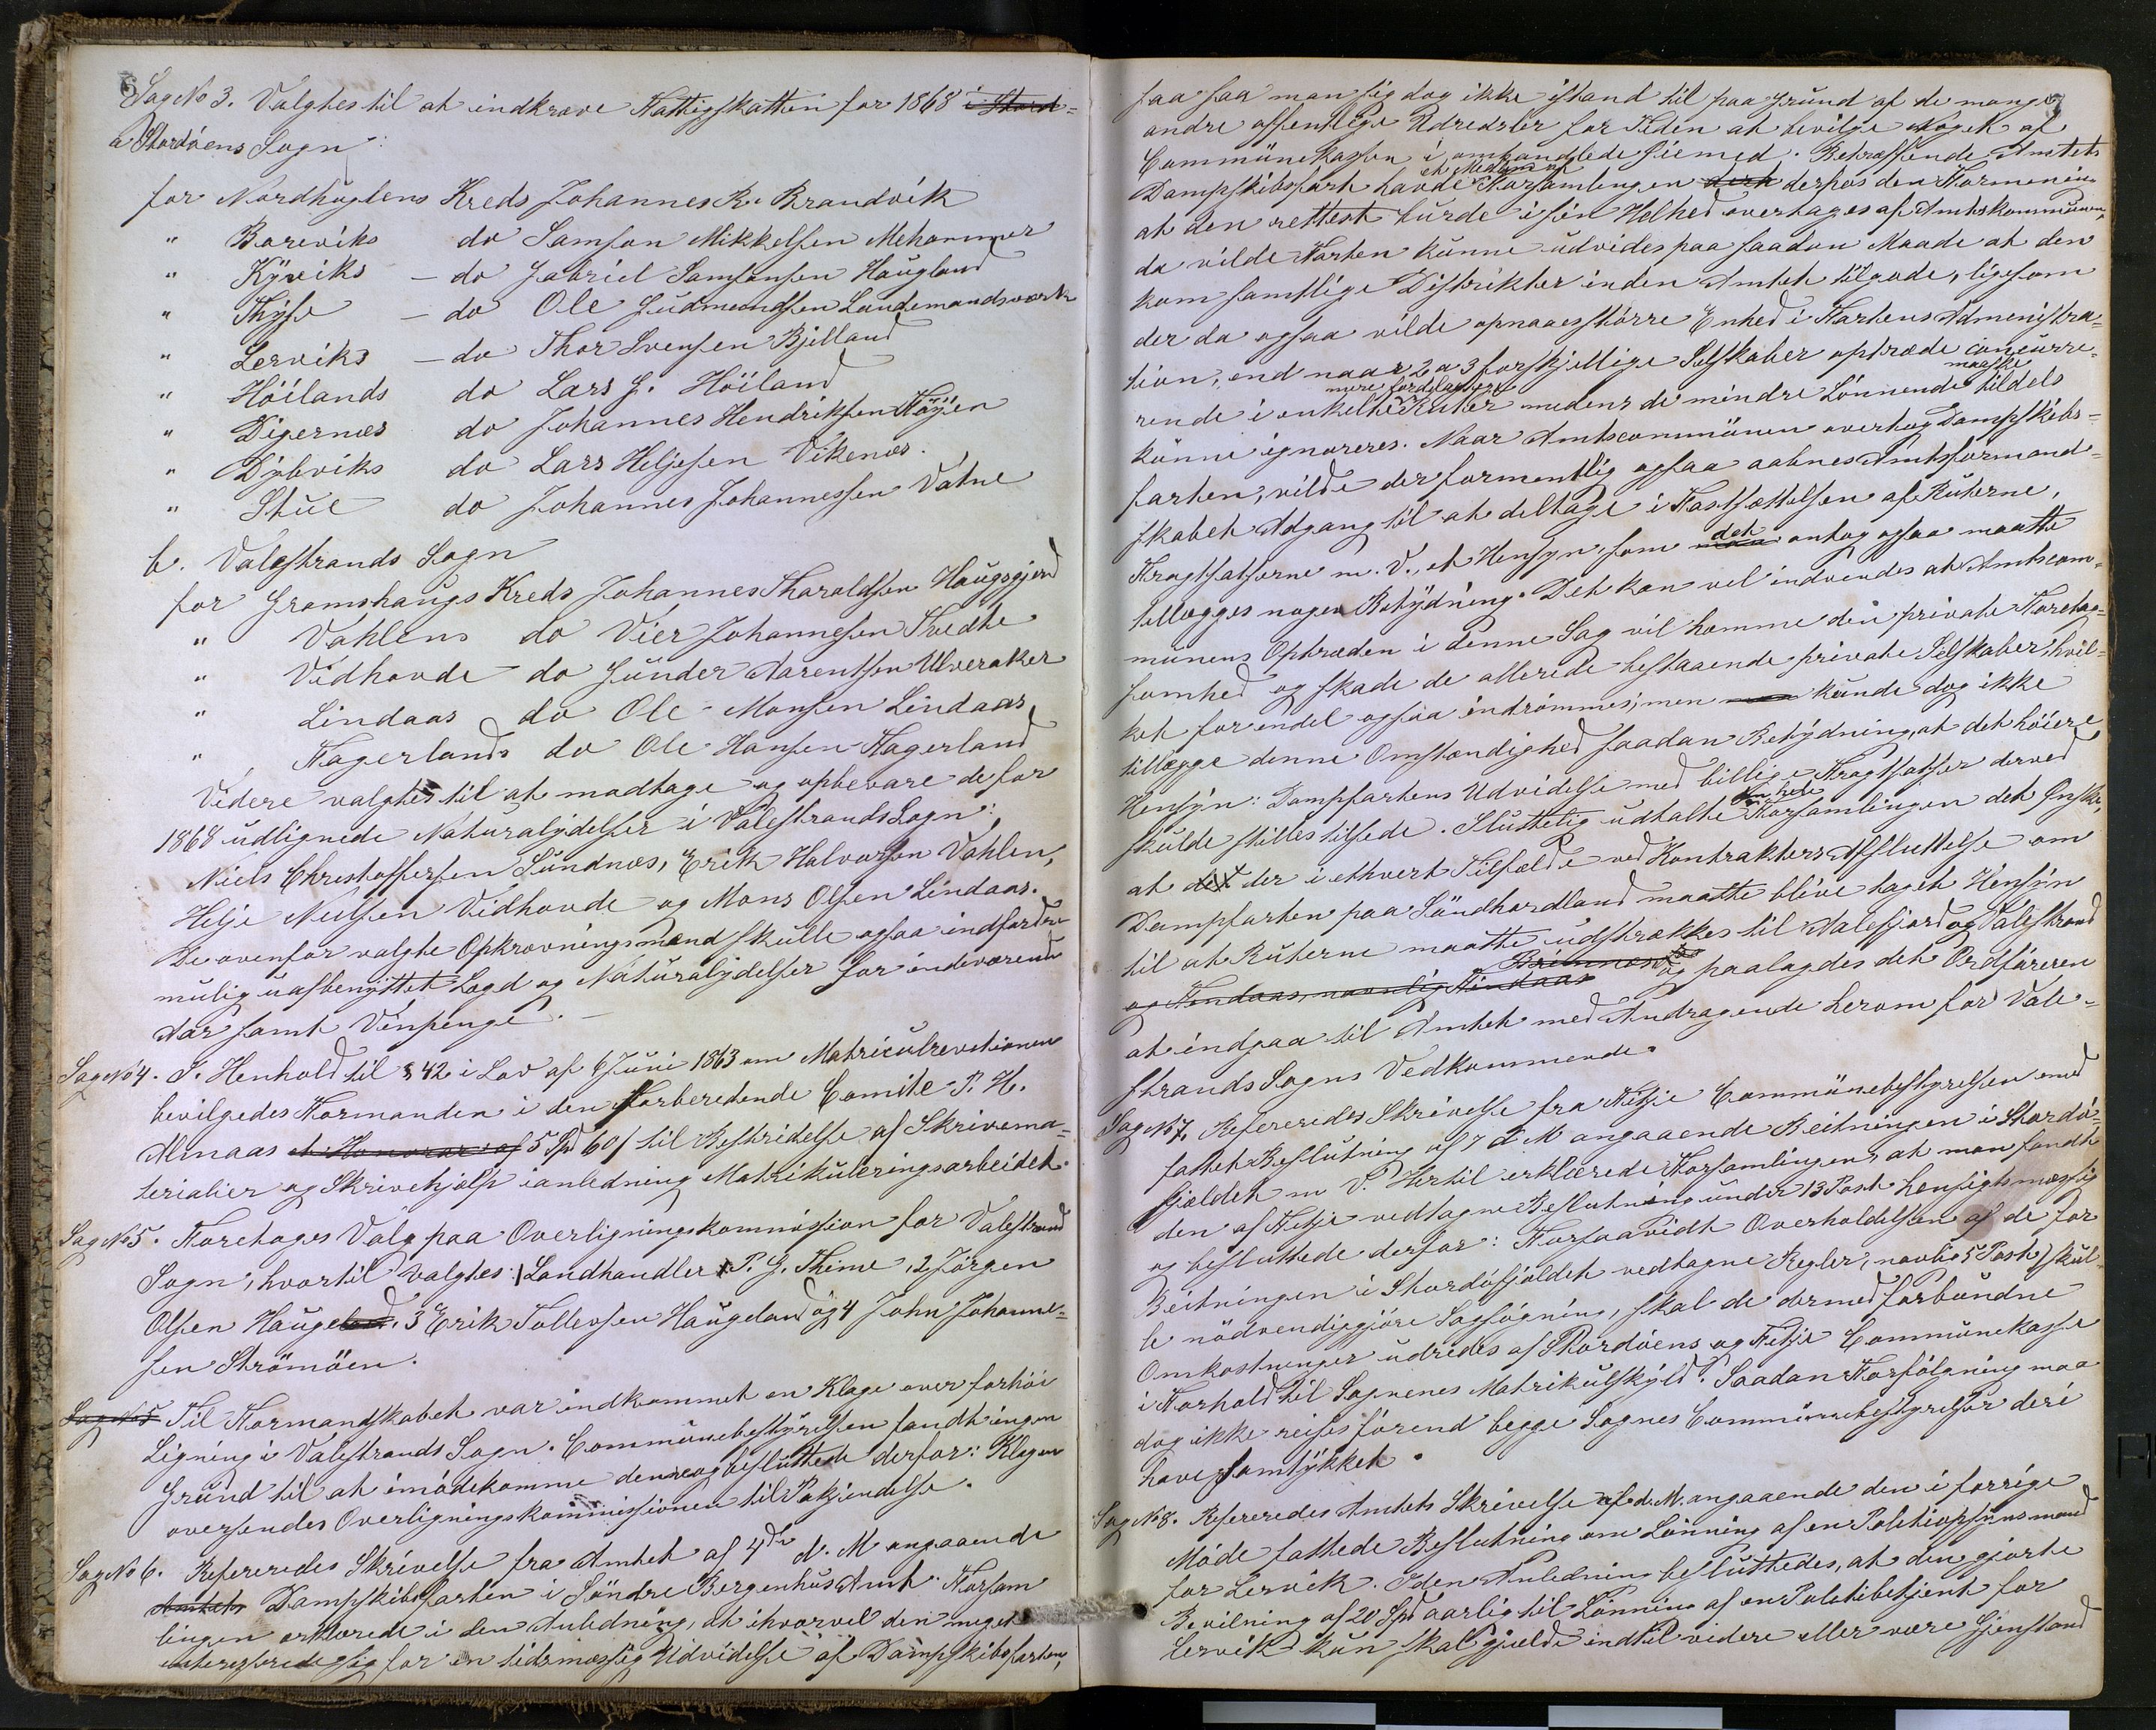 6
Sag No 3. Valgtes til at indkræve Fattigskatten for 1868 i Stord-
a Stordøens Sogn:
for Nordhuglens Kreds Johannes R. Brandvik
" Børeviks do Samson Mikkelsen Mehammer
" Kyviks - do Gabriel Samsonsen Haugland
" Thyse - do Ole Gudmundsen Landemandsværk
" Lerviks - do Thor Svensen Bjelland
" Höilands do Lars J. Höiland
" Digernæs do Johannes Hendriksen Töjen
" Dybviks do Lars Heljesen Vikenæs.
" Stue do Johannes Johannessen Vatne
b. Valestrands Sogn
for Gramshaugs Kreds Johannes Tharaldsen Haugsgjerd
" Vahlens do Vier Johannesen Tvedte
" Vidhovde - do Gunder Aarentsen Ulveraker
" Lindaas do Ole Monsen Lindaas
" Fagerlands do Ole Hansen Fagerland
Videre valgtes til at modtage og opbevare de for
1868 udlignede Naturalydelser i Valestrands Sogn:
Niels Christoffersen Sundnæs, Erik Halvorsen Vahlen,
Helje Neilsen Vidhovde og Mons Olsen Lindaas.
De ovenfor valgte Opkrævningsmænd skulle ogsaa indfordre
mulig uafbenyttet Lægd og Naturalydelser for indeværende
Aar samt Vinpenge. -
Sag No 4. I Henhold til § 42 i Lov af 6 Juni 1863 om Matriculrevitionen
bevilgedes Formanden i den Forberedende Comite P. H.
Almaas et Honorar af 5 Spd 60 s til Bestridelse af Skrivema-
terialier og Skrivehjælp i anledning Matrikuleringsarbeidet.
Sag No 5. Foretages Valg paa Overligningskommission for Valestrand
Sogn, hvortil valgtes: 1 Landhandler P. G. Thime, 2 Jörgen
Olsen Hauge 3 Erik Tollevsen Haugeland og 4 John Johanne-
sen Strömöen.
Sag No 5 Til Formandskabet var indkommet en Klage over forhöi
Ligning i Valestrands Sogn. Communebestyrelsen fandt ingen
Grund til at imödekomme denne og besluttede derfor: Klagen
oversendes Overligningskommissionen til Pakjendelse.
Sag No 6. Refereredes Skrivelse fra Amtet af 4de d. M angaaende
Amtets Dampskibsfarten i Söndre Bergenhus Amt. Forsam
lingen erklærede i den Anledning, at ihvorvel den meget
interesserede sig for en tidsmæssig Udvidelse af Dampskibsfarten,
7
saa saa man sig dog ikke istand til paa Grund af de mange
andre offentlige Udredsler for Tiden at bevilge Noget af
Communekassen i omhandlede Öiemed. Betræffende Amtets
et Medlem af
Dampskibsfart havde Forsamlingen derhos den Formening
at den rettest burde i sin Helhed overtages af Amtskommunen,
da vilde Farten kunne udvides paa saadan Maade at den
kom samtlige Distrikter inden Amtet tilgode, ligesom
der da ogsaa vilde opnaaes större Enhed i Fartens Administra-
tion, end naar 2 a 3 forskjellige Selskaber optræde concurre-
mere fordelagtige maaske
rende i enkelte Ruter medens de mindre Lönnende tildels
kunne ignoreres. Naar Amtscommunen overtog Dampskibs-
farten, vilde der formentlig ogsaa aabnes Amtsformand-
skabet Adgang til at deltage i Fastsættelsen af Ruterne,
det
Fragtsatserne m. V., et Hensyn, som antog ogsaa maatte
tillægges nogen Betydning. Det kan vel indvendes at Amtscom-
munens Optræden i denne Sag vil hemme den private Foretag-
somhed og skade de allerede bestaaende private Selskaber, hvil-
ket for endel ogsaa indrömmes; men kunde dog ikke
tillægge denne Omstændighed saadan Betydning, at det höiere
Hensyn: Dampfartens Udvidelse med billige Fragtsatser derved
den hele
skulde stilles tilside. Sluttelig udtalte Forsamlingen det Önske,
at det der i ethvert Tilfælde ved Kontrakters Afsluttelse om
Dampfarten paa Söndhordland maatte blive taget Hensyn
til at Ruterne maatte udstrækkes til Aalefjord og Valestrand
og paalagdes det Ordföreren
at indgaa til Amtet med Andragende herom for Vale-
strands Sogns Vedkommende.
Sag No 7. Refereredes Skrivelse fra Fitje Communebestyrelsen med
fattet Beslutning af 7 d M angaaende Beitningen i Stordö-
fjeldet m V. Hertil erklærede Forsamlingen, at man fandt
den af Fitje vedtagne Beslutning under 13 Post hensigtsmæssig
og besluttede derfor: Forsaavidt Overholdelsen af de for
Beitningen i Stordöfjeldet vedtagne Regler, navnlig 5 Post, skul-
le nödvendiggjöre Sagsögning, skal de dermed forbundne
Omkostninger udredes af Stordöens og Fitje Communekasse
i Forhold til Sognenes Matrikulskyld. Saadan Forfölgning maa
dog ikke reises förend begge Sognes Communebestyrelser deri
have samtykket.
Sag No 8. Refereredes Amtets Skrivelse af d. M. angaaende den i forrige
Möde fattede Beslutning om Lönning af en Politiopsynsmand
for Lervik. I den Anledning besluttedes, at den gjorte
Bevilgning af 20 Spd aarlig til Lönning af en Politibetjent for
Lervik kun skal gjælde indtil videre eller være Gjenstand